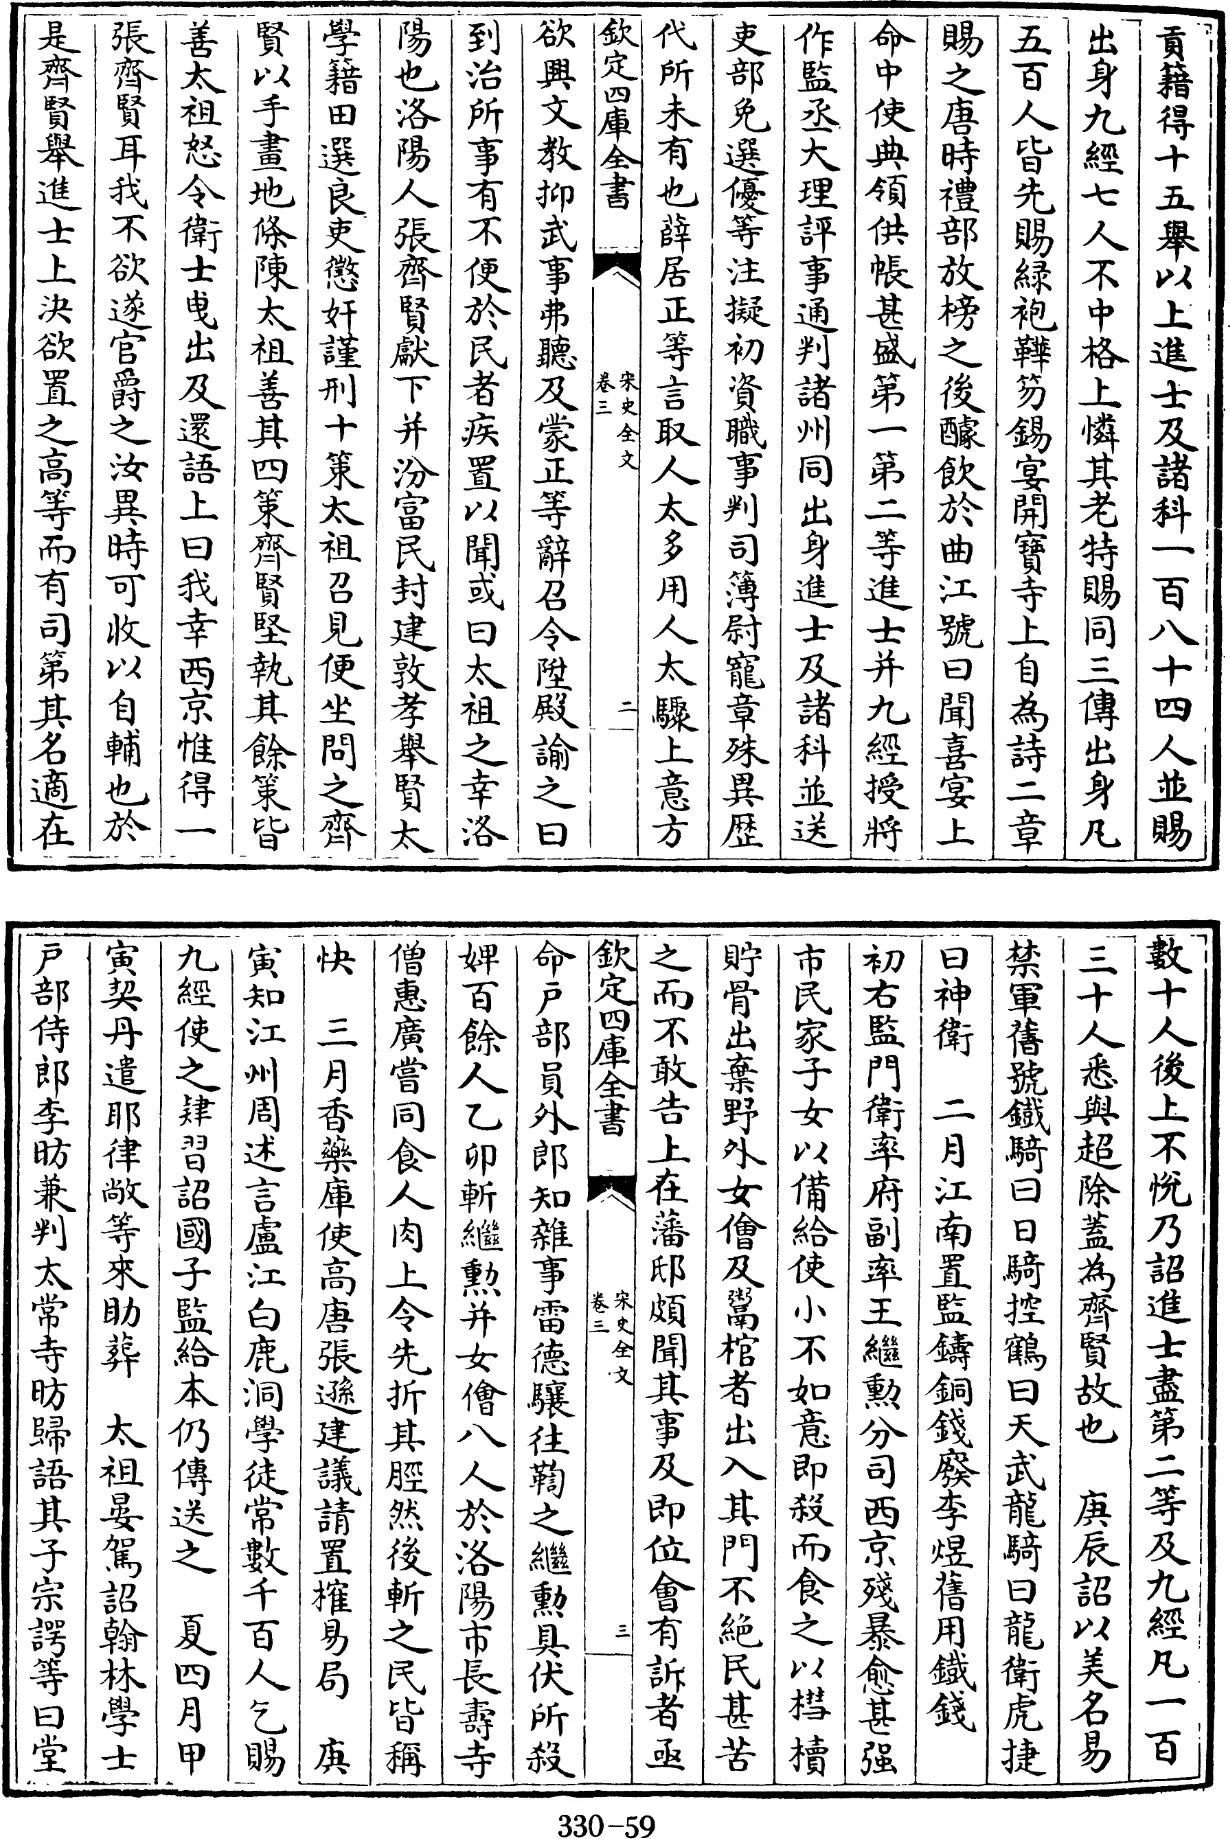 貢籍得十五舉以上進士及諸科一百八十四人並賜
出身九經七人不中格上憐其老特賜同三傳出身凡
五百人皆先賜緑袍鞾笏錫宴開寳寺上自為詩二章
賜之唐時禮部放榜之後醵飲於曲江號曰聞喜宴上
命中使典領供帳甚盛第一第二等進士并九經授將
作監丞大理評事通判諸州同出身進士及諸科並送
吏部免選優等注擬初資職事判司簿尉寵章殊異歷
代所未有也薛居正等言取人太多用人太驟上意方
欽定四庫全書
宋史全文
卷三
二
欲興文教抑武事弗聽及蒙正等辭召令陞殿諭之曰
到治所事有不便於民者疾置以聞或曰太祖之幸洛
陽也洛陽人張齊賢獻下并汾富民封建敦孝舉賢太
學籍田選良吏懲奸謹刑十策太祖召見便坐問之齊
賢以手畫地條陳太祖善其四策齊賢堅執其餘策皆
善太祖怒令衛士曵出及還語上曰我幸西京惟得一
張齊賢耳我不欲遂官爵之汝異時可收以自輔也於
是齊賢舉進士上決欲置之高等而有司第其名適在
數十人後上不悦乃詔進士盡第二等及九經凡一百
三十人悉與超除蓋為齊賢故也　庚辰詔以美名易
禁軍舊號鐵騎曰日騎控鶴曰天武龍騎曰龍衛虎捷
曰神衛　二月江南置監鑄銅錢廢李煜舊用鐵錢
初右監門衛率府副率王繼勲分司西京殘暴愈甚强
市民家子女以備給使小不如意即殺而食之以槥櫝
貯骨出棄野外女僧及鬻棺者出入其門不絶民甚苦
之而不敢告上在藩邸頗聞其事及即位會有訴者亟
欽定四庫全書
宋史全文
卷三
三
命户部員外郎知雜事雷德驤往鞫之繼勲具伏所殺
婢百餘人乙卯斬繼勲并女僧八人於洛陽市長壽寺
僧惠廣嘗同食人肉上令先折其脛然後斬之民皆稱
快　三月香藥庫使高唐張遜建議請置榷易局　庚
寅知江州周述言盧江白鹿洞學徒常數千百人乞賜
九經使之肄習詔國子監給本仍傳送之　夏四月甲
寅契丹遣耶律敞等來助葬　太祖晏駕詔翰林學士
戸部侍郎李昉兼判太常寺昉歸語其子宗諤等曰堂
330-59